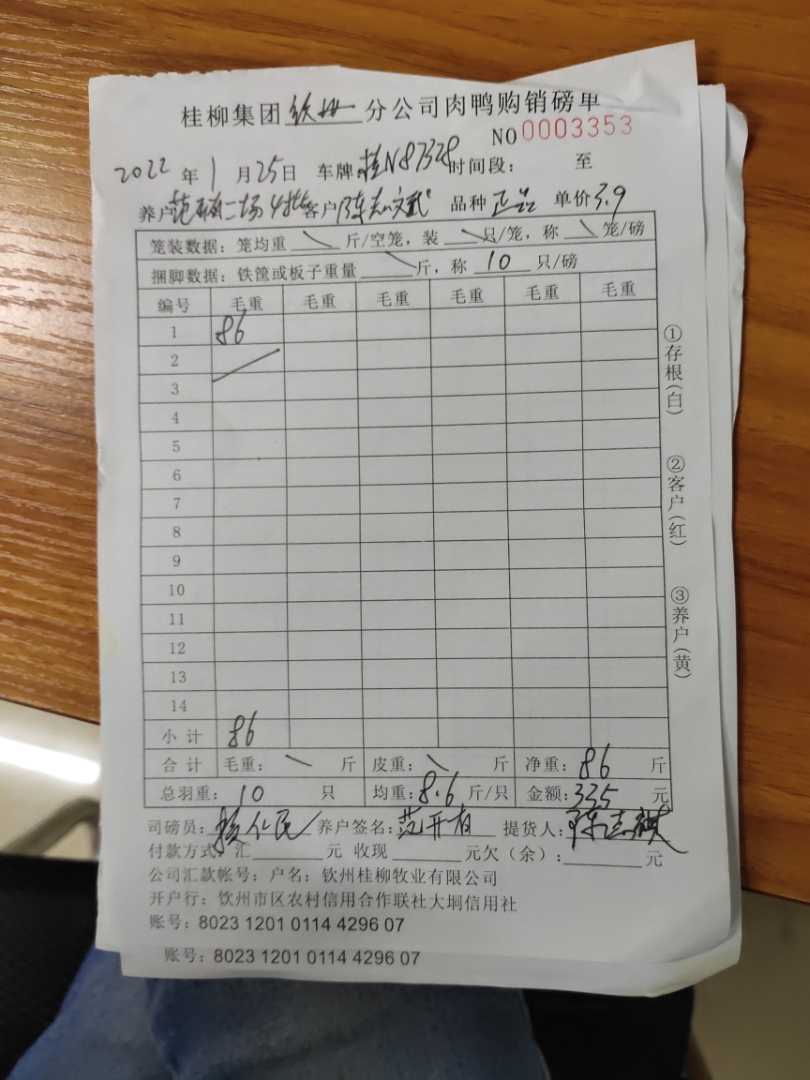 桂柳集团钦州分公司肉鸭购销磅单
NO 0003353
2022年1月25日 车牌:桂N87328 时间段: 至
养户 范 二场 4批 客户 陈志文武 品种 正品 单价 3.9
笼装数据:笼均重 \ 斤/空笼,装 \ 只/笼,称 \ 笼/磅
捆脚数据:铁筐或板子重量 \ 斤,称 10 只/磅
编号 毛重 毛重 毛重 毛重 毛重 毛重
1 86
2
3
4
5
6
7
8
9
10
11
12
13
14
小计 86
合计 毛重: \ 斤 皮重: \ 斤 净重: 86 斤
总羽重: 10 只 均重: 8.6 斤/只 金额: 335 元
司磅员: 养户签名: 范开有 提货人: 陈志
付款方式:汇 元 收现 元欠(余): 元
公司汇款帐号:户名:钦州桂柳牧业有限公司
开户行:钦州市区农村信用合作联社大垌信用社
账号:8023 1201 0114 4296 07
账号:8023 1201 0114 4296 07
①存根(白)
②客户(红)
③养户(黄)